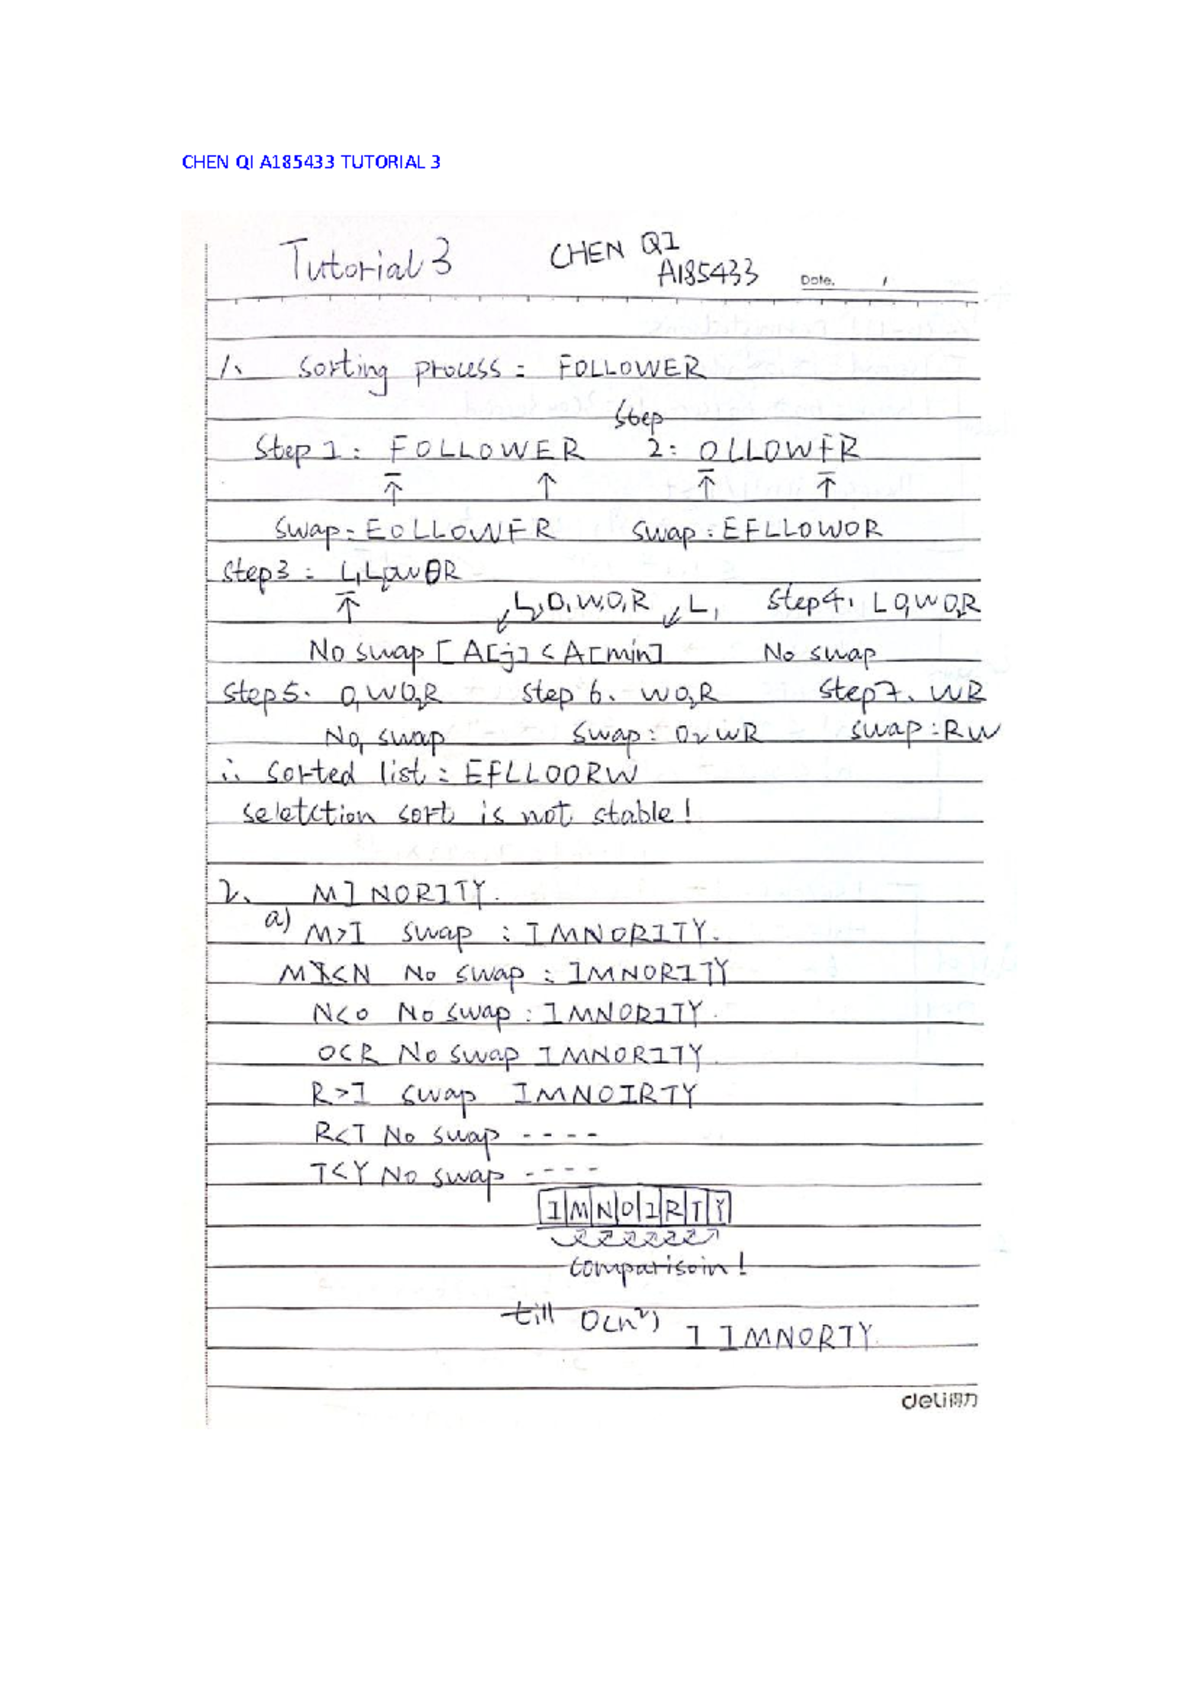 CHEN QI A185433 TUTORIAL 3
Tutorial 3 CHEN QI
A185433 Date. /
1、 Sorting process: FOLLOWER
Step 1: FOLLOWER Step 2: OLLOWFR
Swap: EOLLOWFR Swap: EFLLOWOR
Step3: L1L2OWOR
L2O1WO2R L1 Step4. L O1WO2R
No swap [A[j] < A[min] No swap
Step5. O1WO2R Step 6. WO2R Step7. WR
No swap Swap: O2WR swap: RW
∴ Sorted list: EFLLOORW
seletction sort is not stable!
2、 MINORITY.
a) M>I swap: IMNORITY.
M<N No swap: IMNORITY
N<O No swap: IMNORITY.
O<R No swap IMNORITY.
R>I swap IMNOIRTY
R<T No swap ----
T<Y No swap ----
I M N O I R T Y
comparisoin!
till O(n²) I IMNORTY.
deli得力